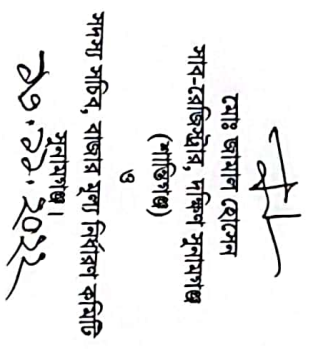 মোঃ জামাল হোসেন
সাব-রেজিস্ট্রার, দক্ষিণ সুনামগঞ্জ
(শান্তিগঞ্জ)
ও
সদস্য সচিব, বাজার মূল্য নির্ধারণ কমিটি
সুনামগঞ্জ।
১৩.১১.২০২২